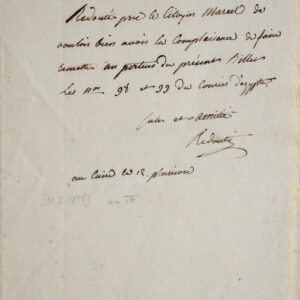 Redouté prie le Citoyen Marcel de
vouloir bien avoir la Complaisance de faire
remettre au porteur du présent Billet
Les nos 98 et 99 du Courier d'egypte.
Salut et amitié
Redouté
au Caire le 12 pluviose
an VII